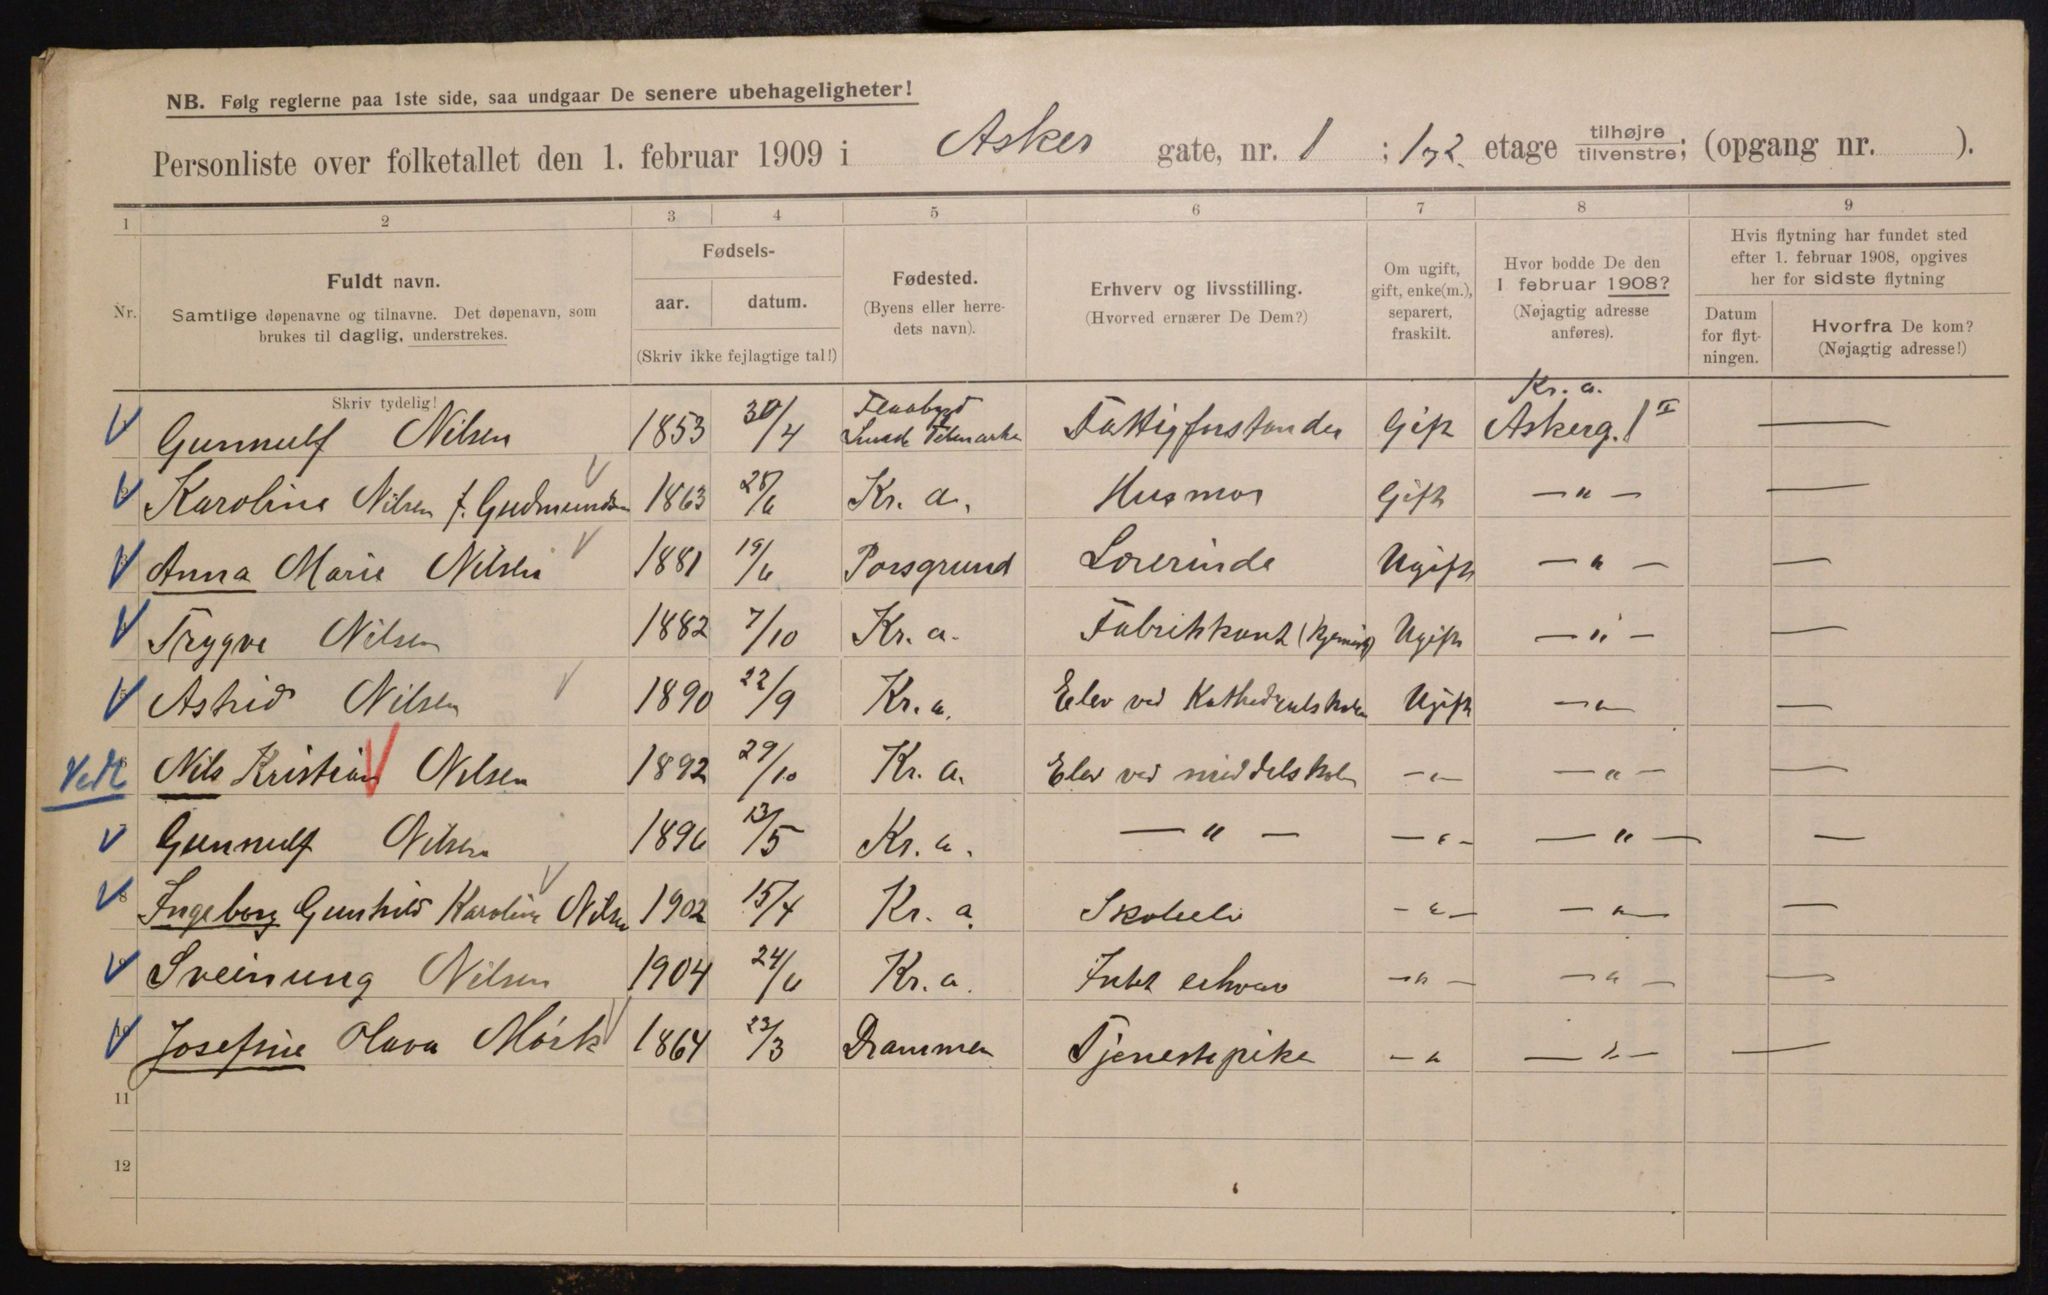 NB. Følg reglerne paa 1ste side, saa undgaar De senere ubehageligheter!
Personliste over folketallet den 1. februar 1909 i Asker gate, nr. 1 ; 1 og 2. etage tilhøjre / tilvenstre; (opgang nr. ).
1 2 3 4 5 6 7 8 9
Nr.
Fuldt navn.
Samtlige døpenavne og tilnavne. Det døpenavn, som
brukes til daglig, understrekes.
Skriv tydelig!
Fødsels-
aar. datum.
(Skriv ikke fejlagtige tal!)
Fødested.
(Byens eller herre-
dets navn).
Erhverv og livsstilling.
(Hvorved ernærer De Dem?)
Om ugift,
gift, enke(m.),
separert,
fraskilt.
Hvor bodde De den
1 februar 1908?
(Nøjagtig adresse
anføres).
Hvis flytning har fundet sted
efter 1. februar 1908, opgives
her for sidste flytning
Datum
for flyt-
ningen.
Hvorfra De kom?
(Nøjagtig adresse!)
Gunnulf Nilsen 1853 30/4 Flaabygd Telemarken Fattigforstander Gift Kr. a. Askerg. 1 II —
2 Karoline Nilsen f. Gudmundsen 1863 28/6 Kr. a. Husmor Gift — " — —
3 Anna Marie Nilsen 1881 19/6 Porsgrund Lærerinde Ugift — " — —
4 Trygve Nilsen 1882 7/10 Kr. a. Fabrikkant (kjemisk) Ugift — " — —
5 Astrid Nilsen 1890 22/9 Kr. a. Elev ved Kathedralskolen Ugift — " — —
Vedl 6 Nils Kristian Nilsen 1892 29/10 Kr. a. Elev ved middelskolen — " — — " — —
7 Gunnulf Nilsen 1896 13/5 Kr. a. — " — — " — — " — —
8 Ingeborg Gunhild Karoline Nilsen 1902 15/4 Kr. a. Skoleelev — " — — " — —
9 Sveinung Nilsen 1904 24/6 Kr. a. Intet erhverv — " — — " — —
10 Josefine Olava Mørk 1864 23/3 Drammen Tjenestepike — " — " — —
11
12